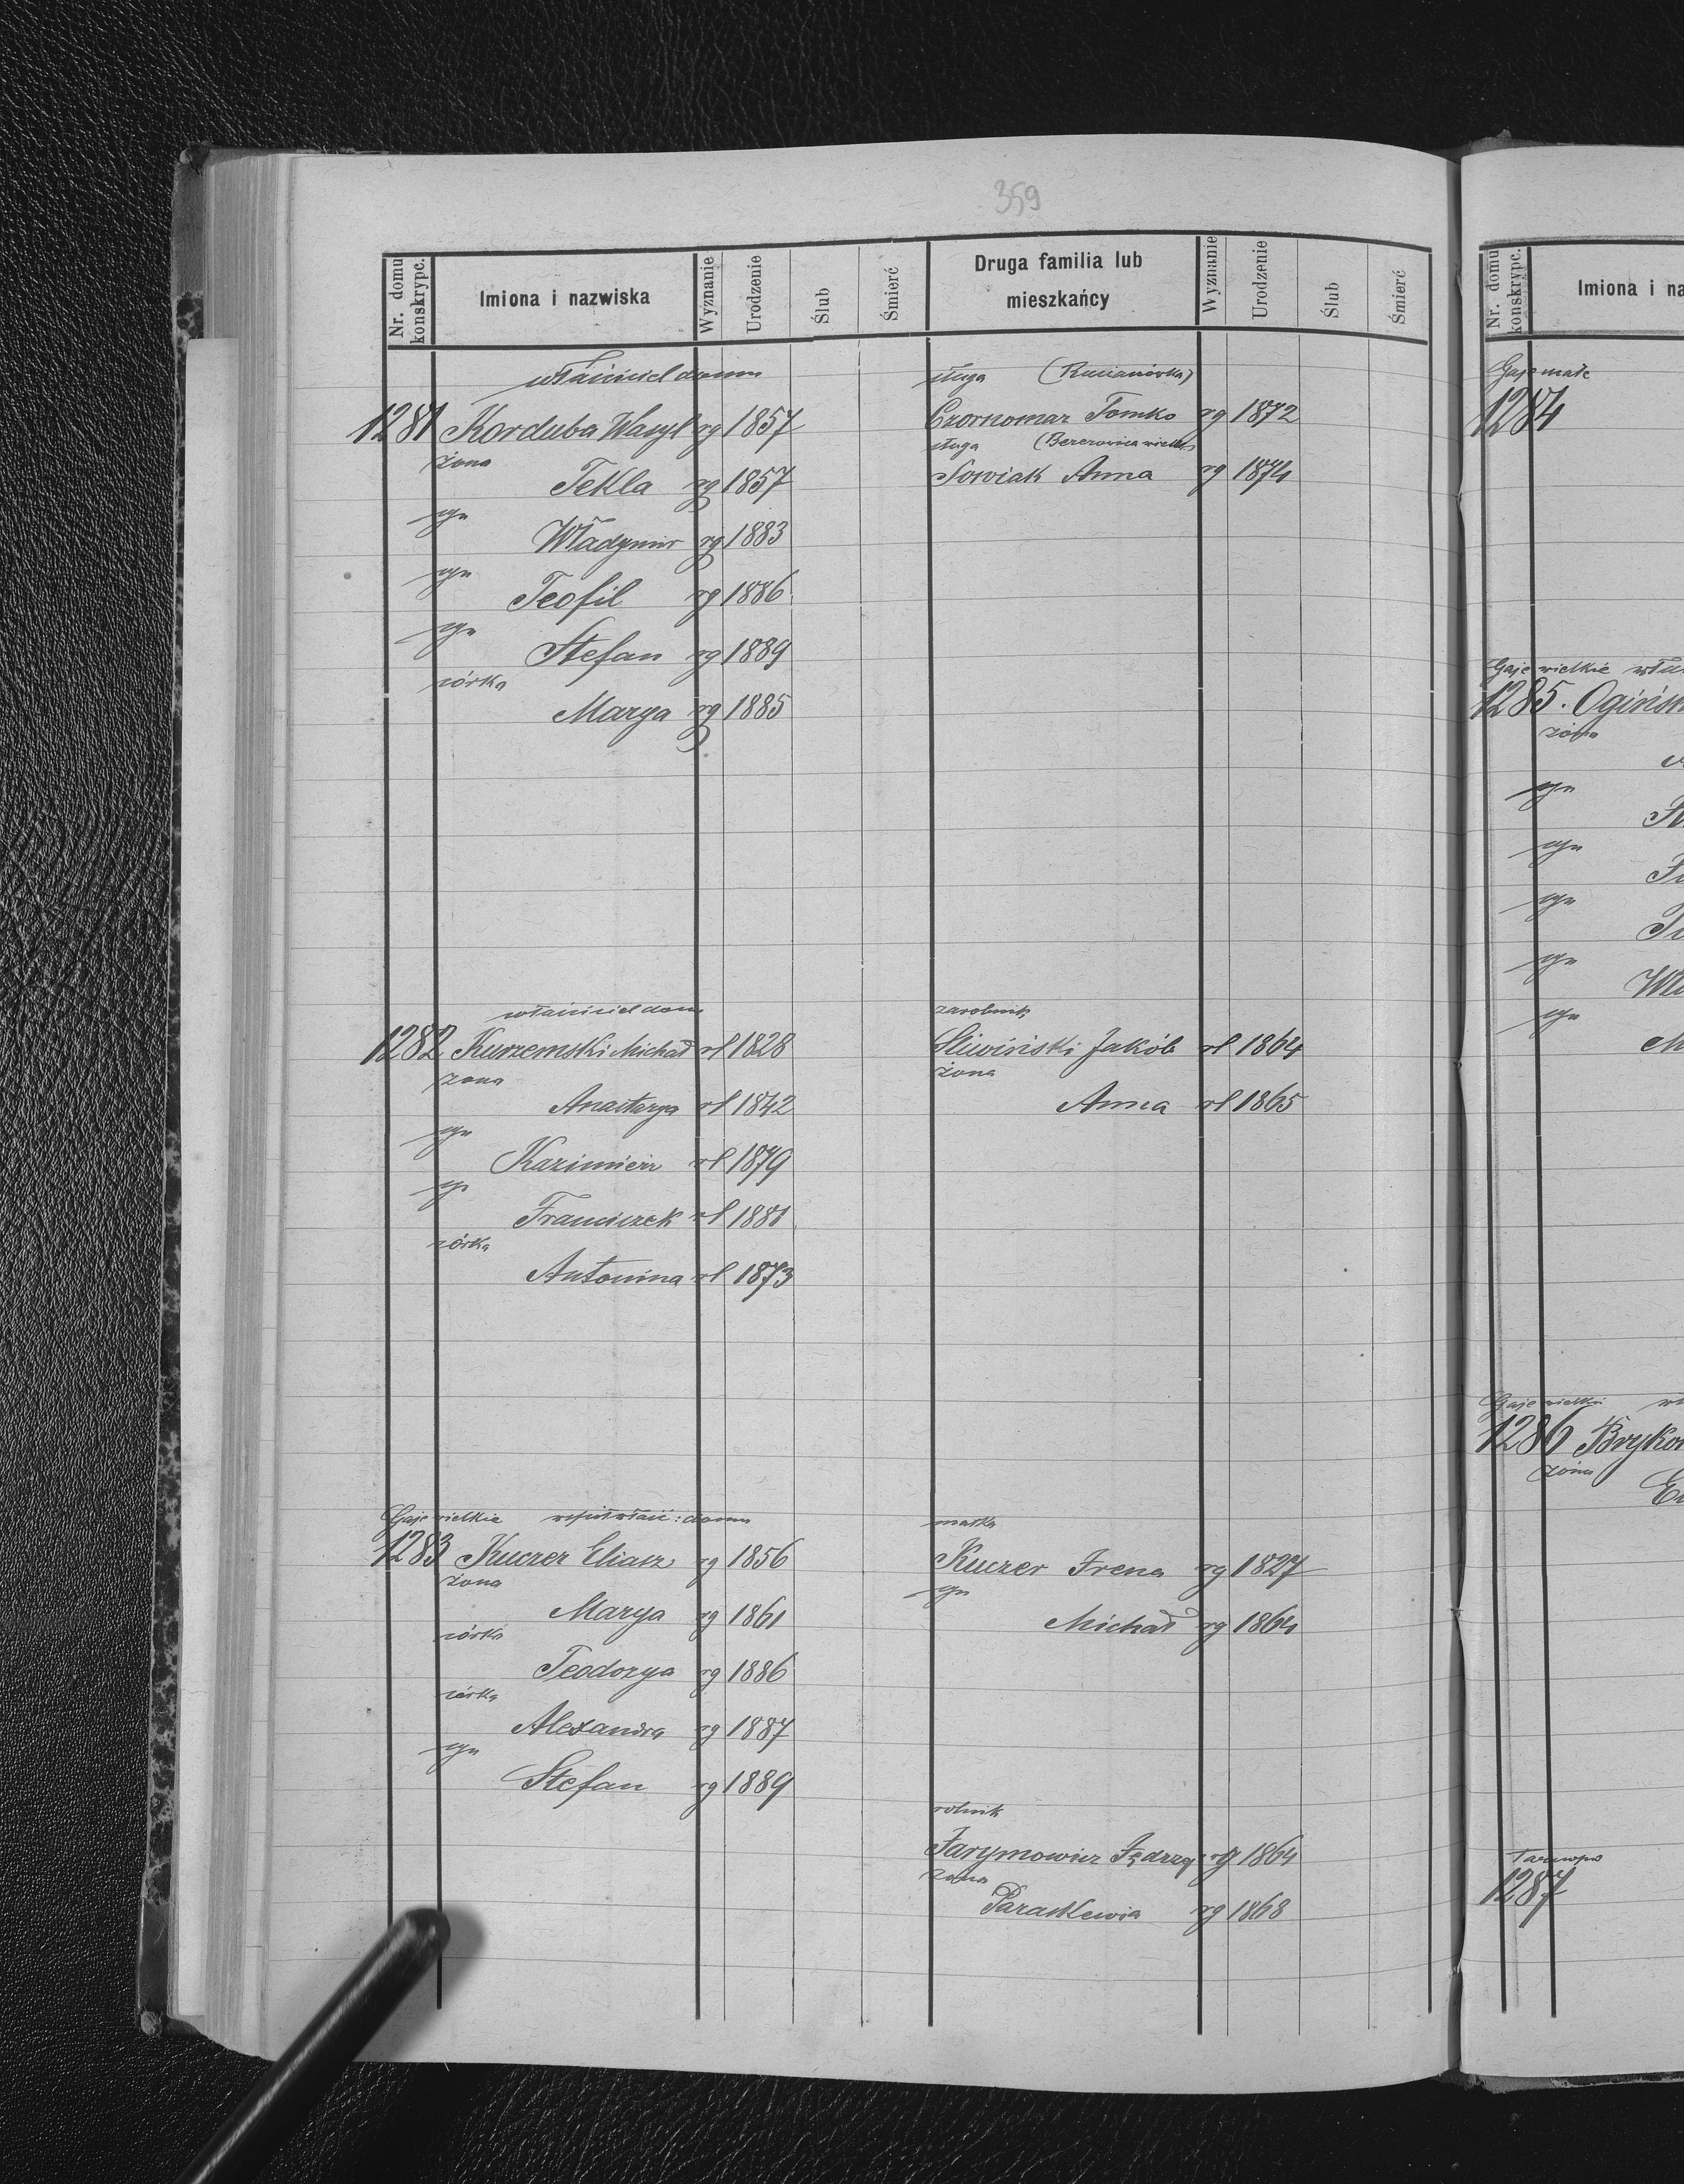 359
Nr. domu konskrypc.
Imiona i nazwiska
Wyznanie
Urodzenie
Ślub
Śmierć
Druga familia lub mieszkańcy
Wyznanie
Urodzenie
Ślub
Śmierć
właściciel domu
1281 Korduba Wasyl rg 1857
żona
Tekla rg 1857
syn
Władymir rg 1883
syn
Teofil rg 1886
syn
Stefan rg 1889
córka
Marya rg 1885
sługa
Czornomaz Tomko rg 1872
sługa (Berezowica wielka)
Sowiak Anna rg 1874
właściciel domu
1282 Kurzemski Michał rl 1828
żona
Anastazya rl 1842
syn
Kazimierz rl 1879
syn
Franciszek rl 1881
córka
Antonina rl 1873
zarobnik
Śliwiński Jakób rl 1864
żona
Anna rl 1865
Gaje wielkie współwłaść: domu
1283 Kuczer Eliasz rg 1856
żona
Marya rg 1861
córka
Teodozya rg 1886
córka
Alexandra rg 1887
syn
Stefan rg 1889
matka
Kuczer Irena rg 1827
syn
Michał rg 1864
rolnik
Jarymowicz Jędrzej rg 1864
żona
Paraskewia rg 1868
Nr. domu konskrypc.
Imiona i na
Gaje małe
1284
Gaje wielkie
1285.
żona
syn
syn
syn
syn
syn
Gaje wielkie
1286
żona
1287